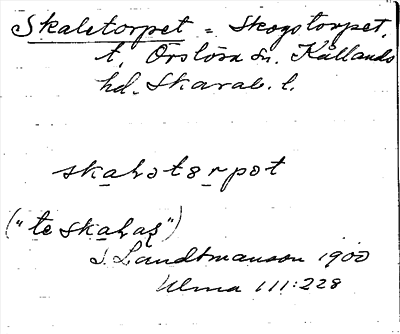 Skaletorpet = Skogstorpet,
t. Örslösa sn. Kållands
hd. Skarab. l.
skalɘtɘrpɘt
("te skalas")
S. Landtmanson 1900
Ulma 111:228